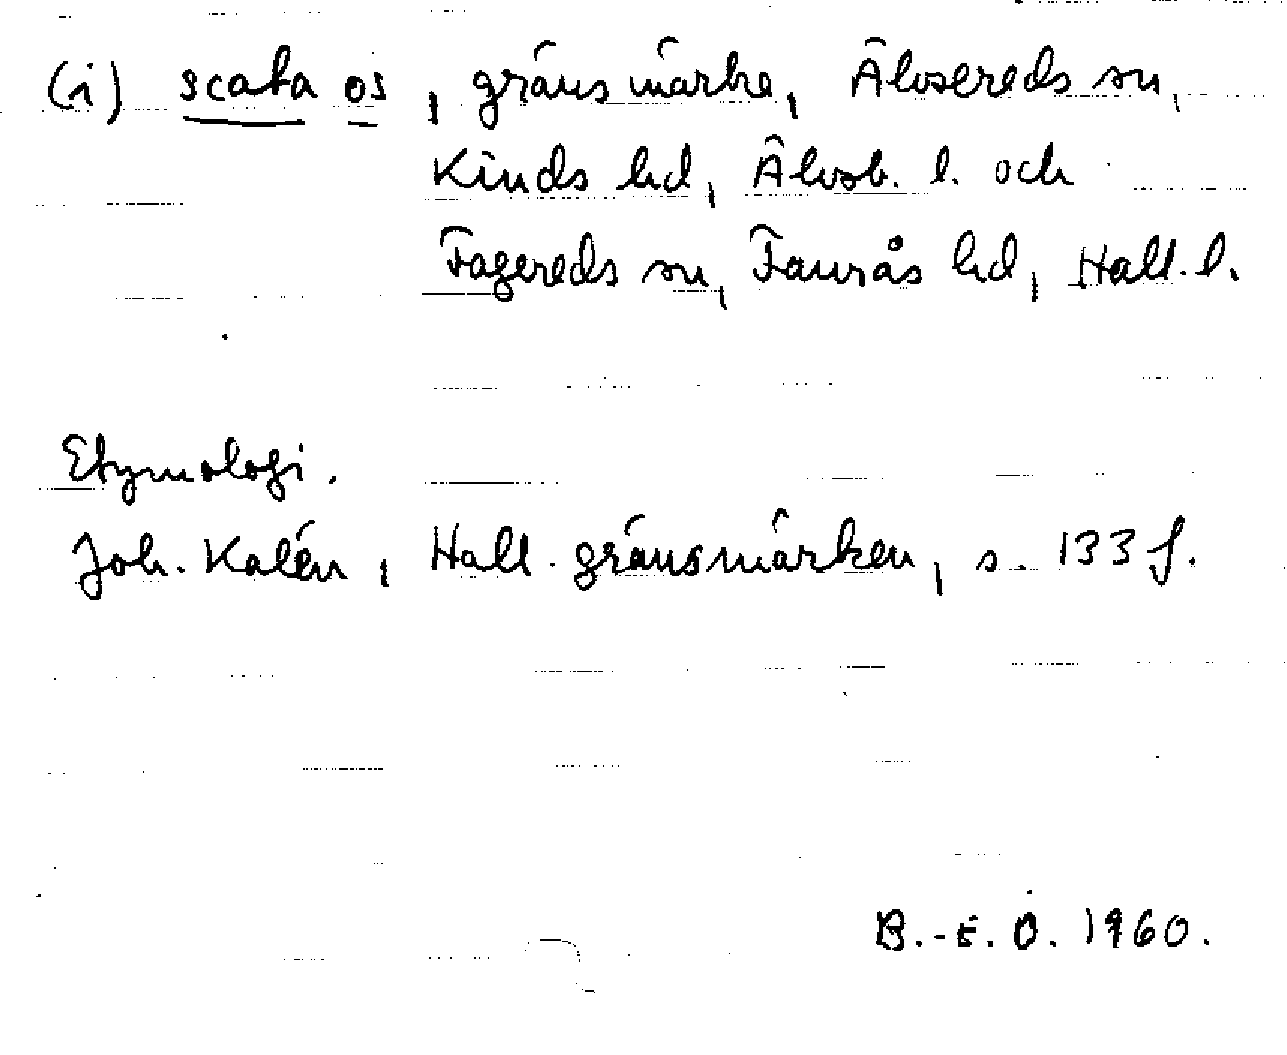 (i) scata os, gränsmärke, Älvsereds sn,
Kinds hd, Älvsb. l. och
Fagereds sn, Faurås hd, Hall. l.
Etymologi.
Joh. Kalén, Hall. gränsmärken, s. 133 f.
B.-E. Ö. 1960.